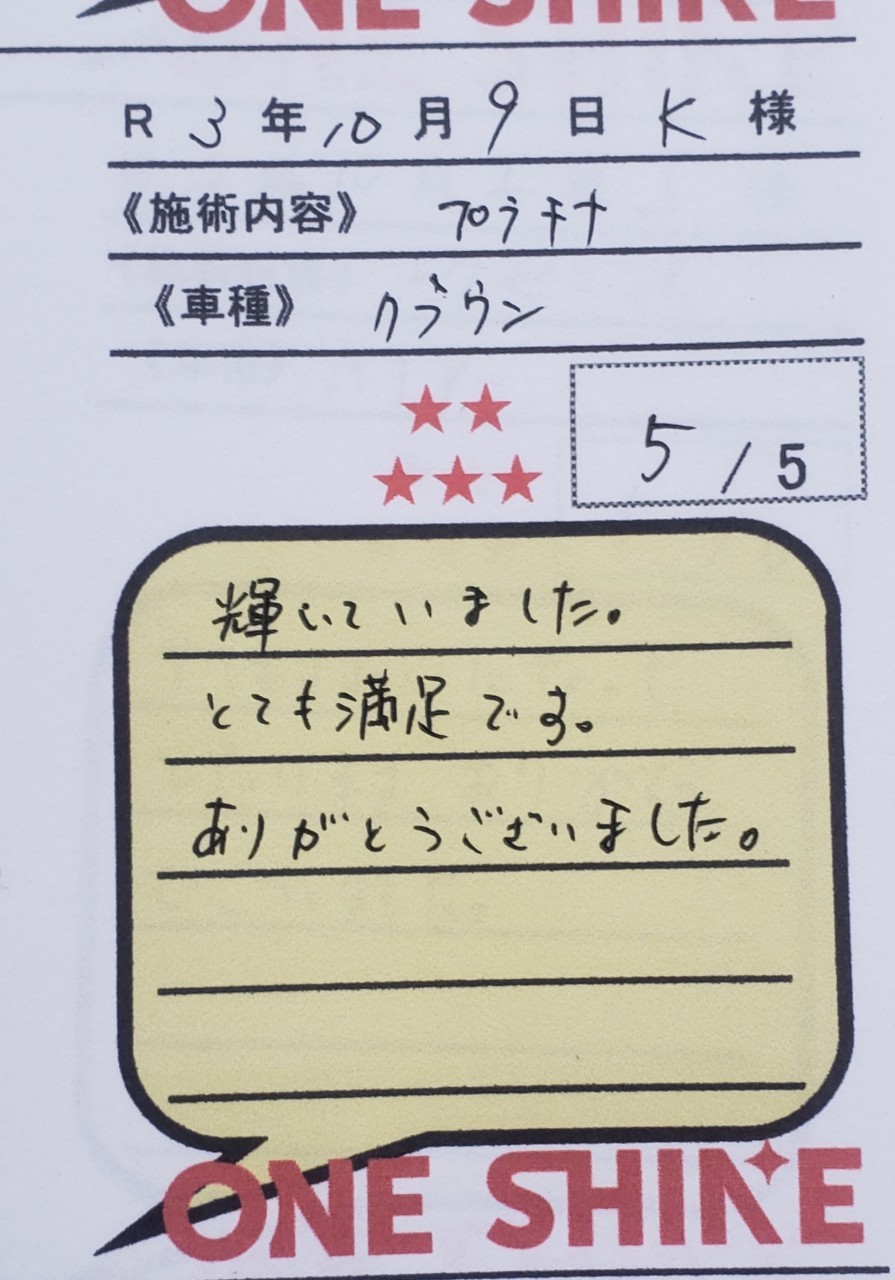 ONE SHINE
R 3年10月9日 K 様
《施術内容》 プラチナ
《車種》 クラウン
5/5
輝いていました。
とても満足です。
ありがとうございました。
ONE SHINE